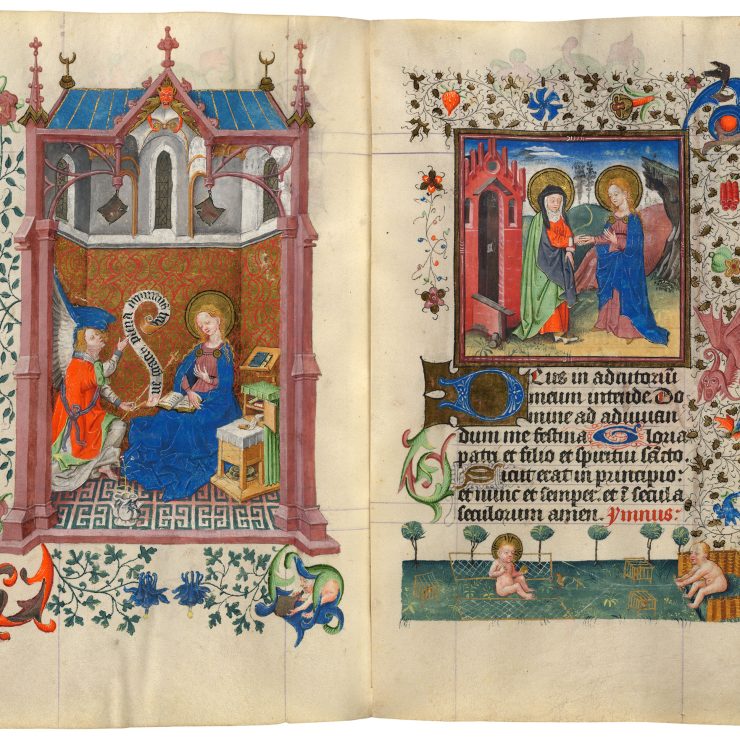 plena dominus
DEus in adiutoriũ
meum intende. Do
mine ad adiuuan
dum me festina Gloria
patri et filio et spiritui sc̃to
Sicut erat in principio:
et nunc et semper. et ĩ secula
seculorum amen. Ymnus: